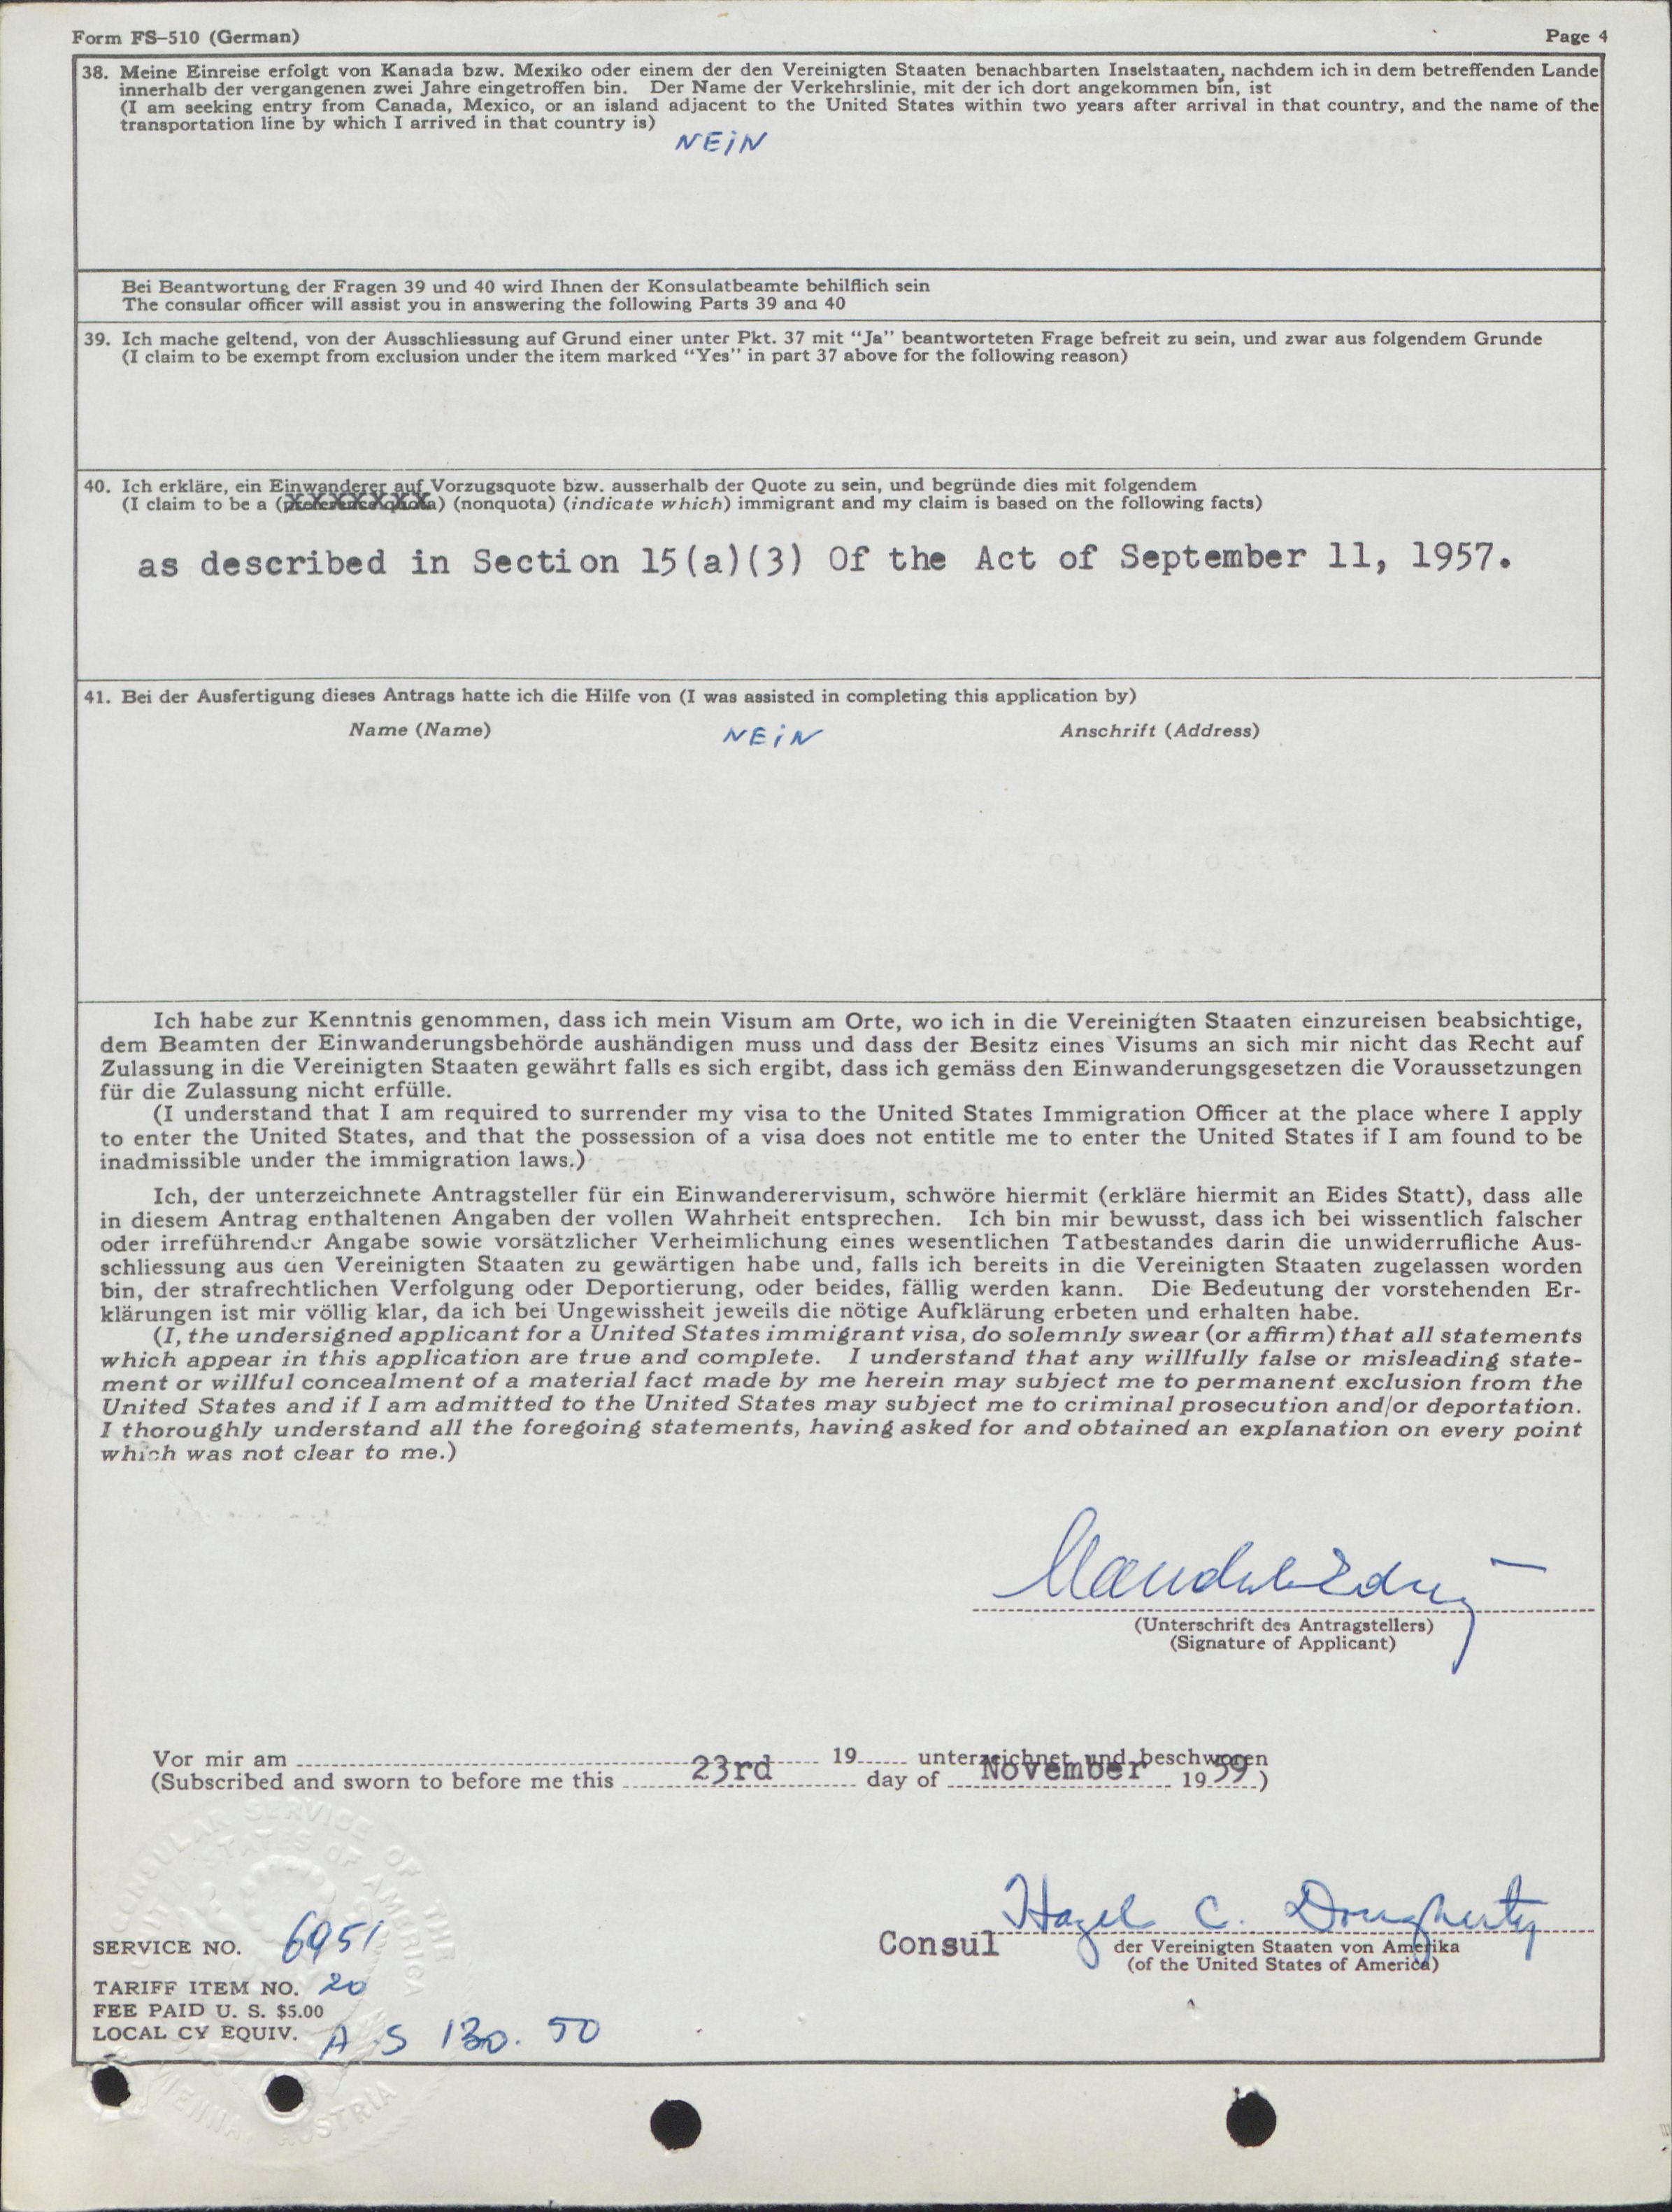 Form FS-510 (German)
Page 4
38. Meine Einreise erfolgt von Kanada bzw. Mexiko oder einem der den Vereinigten Staaten benachbarten Inselstaaten, nachdem ich in dem betreffenden Lande
innerhalb der vergangenen zwei Jahre eingetroffen bin. Der Name der Verkehrslinie, mit der ich dort angekommen bin, ist
(I am seeking entry from Canada, Mexico, or an island adjacent to the United States within two years after arrival in that country, and the name of the
transportation line by which I arrived in that country is)
NEiN
Bei Beantwortung der Fragen 39 und 40 wird Ihnen der Konsulatbeamte behilflich sein
The consular officer will assist you in answering the following Parts 39 and 40
39. Ich mache geltend, von der Ausschliessung auf Grund einer unter Pkt. 37 mit "Ja" beantworteten Frage befreit zu sein, und zwar aus folgendem Grunde
(I claim to be exempt from exclusion under the item marked "Yes" in part 37 above for the following reason)
40. Ich erkläre, ein Einwanderer auf Vorzugsquote bzw. ausserhalb der Quote zu sein, und begründe dies mit folgendem
(I claim to be a (preference quota) (nonquota) (indicate which) immigrant and my claim is based on the following facts)
as described in Section 15(a)(3) Of the Act of September 11, 1957.
41. Bei der Ausfertigung dieses Antrags hatte ich die Hilfe von (I was assisted in completing this application by)
Name (Name) NEiN Anschrift (Address)
Ich habe zur Kenntnis genommen, dass ich mein Visum am Orte, wo ich in die Vereinigten Staaten einzureisen beabsichtige,
dem Beamten der Einwanderungsbehörde aushändigen muss und dass der Besitz eines Visums an sich mir nicht das Recht auf
Zulassung in die Vereinigten Staaten gewährt falls es sich ergibt, dass ich gemäss den Einwanderungsgesetzen die Voraussetzungen
für die Zulassung nicht erfülle.
(I understand that I am required to surrender my visa to the United States Immigration Officer at the place where I apply
to enter the United States, and that the possession of a visa does not entitle me to enter the United States if I am found to be
inadmissible under the immigration laws.)
Ich, der unterzeichnete Antragsteller für ein Einwanderervisum, schwöre hiermit (erkläre hiermit an Eides Statt), dass alle
in diesem Antrag enthaltenen Angaben der vollen Wahrheit entsprechen. Ich bin mir bewusst, dass ich bei wissentlich falscher
oder irreführender Angabe sowie vorsätzlicher Verheimlichung eines wesentlichen Tatbestandes darin die unwiderrufliche Aus-
schliessung aus den Vereinigten Staaten zu gewärtigen habe und, falls ich bereits in die Vereinigten Staaten zugelassen worden
bin, der strafrechtlichen Verfolgung oder Deportierung, oder beides, fällig werden kann. Die Bedeutung der vorstehenden Er-
klärungen ist mir völlig klar, da ich bei Ungewissheit jeweils die nötige Aufklärung erbeten und erhalten habe.
(I, the undersigned applicant for a United States immigrant visa, do solemnly swear (or affirm) that all statements
which appear in this application are true and complete. I understand that any willfully false or misleading state-
ment or willful concealment of a material fact made by me herein may subject me to permanent exclusion from the
United States and if I am admitted to the United States may subject me to criminal prosecution and/or deportation.
I thoroughly understand all the foregoing statements, having asked for and obtained an explanation on every point
which was not clear to me.)
(Unterschrift des Antragstellers)
(Signature of Applicant)
Vor mir am 19 unterzeichnet und beschworen
(Subscribed and sworn to before me this 23rd day of November 1959)
Hazel C. Dougherty
Consul der Vereinigten Staaten von Amerika
(of the United States of America)
SERVICE NO. 6951
TARIFF ITEM NO. 20
FEE PAID U. S. $5.00
LOCAL CY EQUIV. A S 130.50
CONSULAR SERVICE OF THE
UNITED STATES OF AMERICA
VIENNA, AUSTRIA